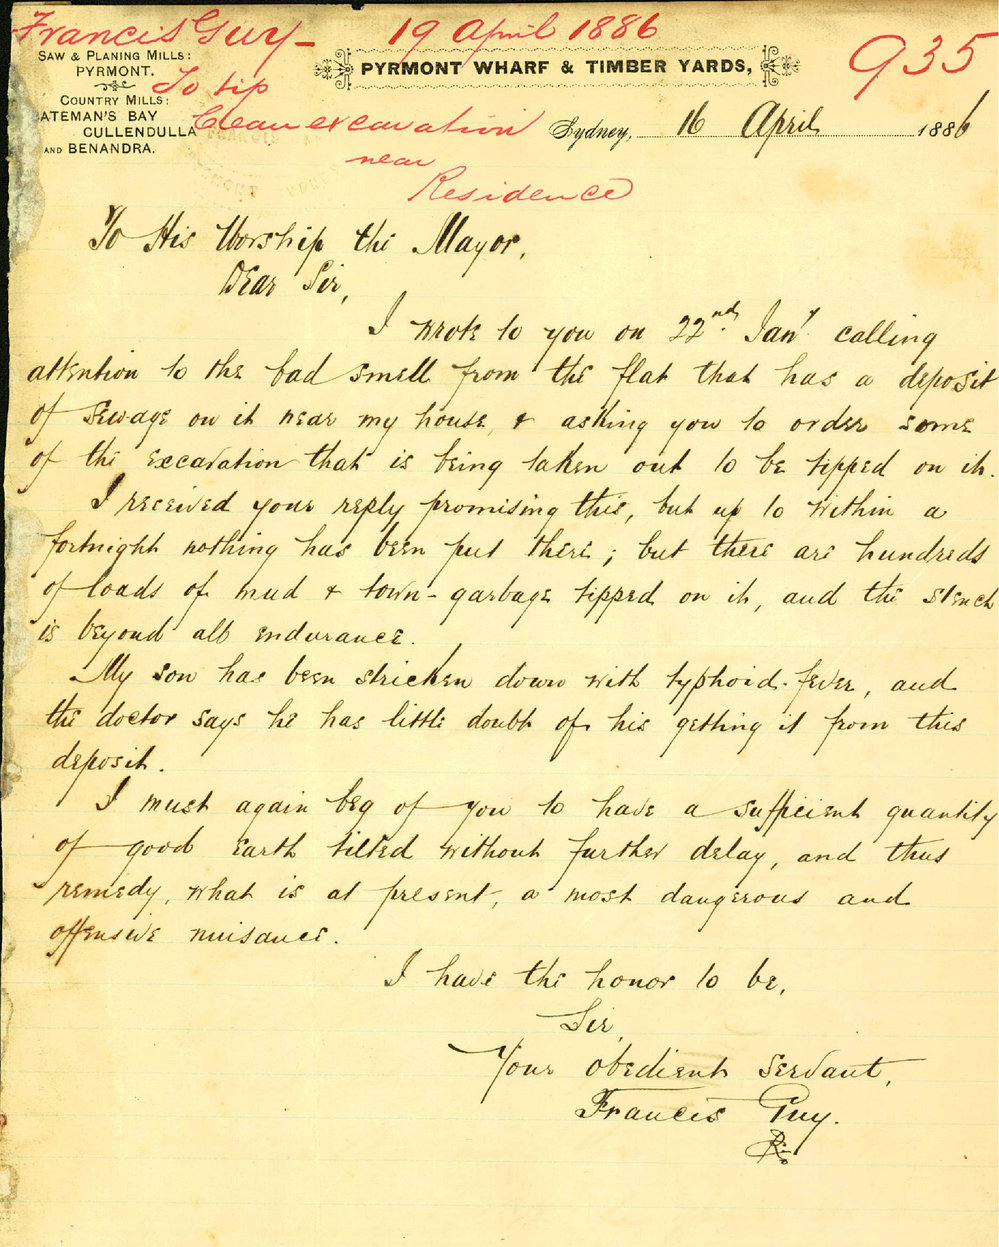 Francis Guy - 19 April 1886
935
SAW & PLANING MILLS:
PYRMONT.
COUNTRY MILLS:
BATEMAN'S BAY
CULLENDULLA
AND BENANDRA.
To tip
Clean excavation
near
Residence
PYRMONT WHARF & TIMBER YARDS,
Sydney, 16 April 1886
To His Worship the Mayor,
Dear Sir,
I wrote to you on 22nd Jany calling
attention to the bad smell from the flat that has a deposit
of sewage on it near my house, & asking you to order some
of the excavation that is being taken out to be tipped on it.
I received your reply promising this, but up to within a
fortnight nothing has been put there; but there are hundreds
of loads of mud & town-garbage tipped on it, and the stench
is beyond all endurance.
My son has been stricken down with typhoid-fever, and
the doctor says he has little doubt of his getting it from this
deposit.
I must again beg of you to have a sufficient quantity
of good earth tilted without further delay, and thus
remedy, what is at present, a most dangerous and
offensive nuisance.
I have the honor to be,
Sir,
Your obedient servant,
Francis Guy.